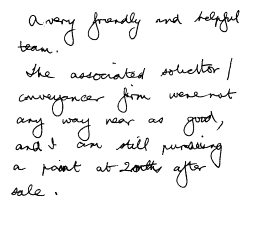 A very friendly and helpful
team.
The associated solicitor /
conveyancer firm were not
any way near as good,
and I am still pursuing
a point at 2 mths after
sale.